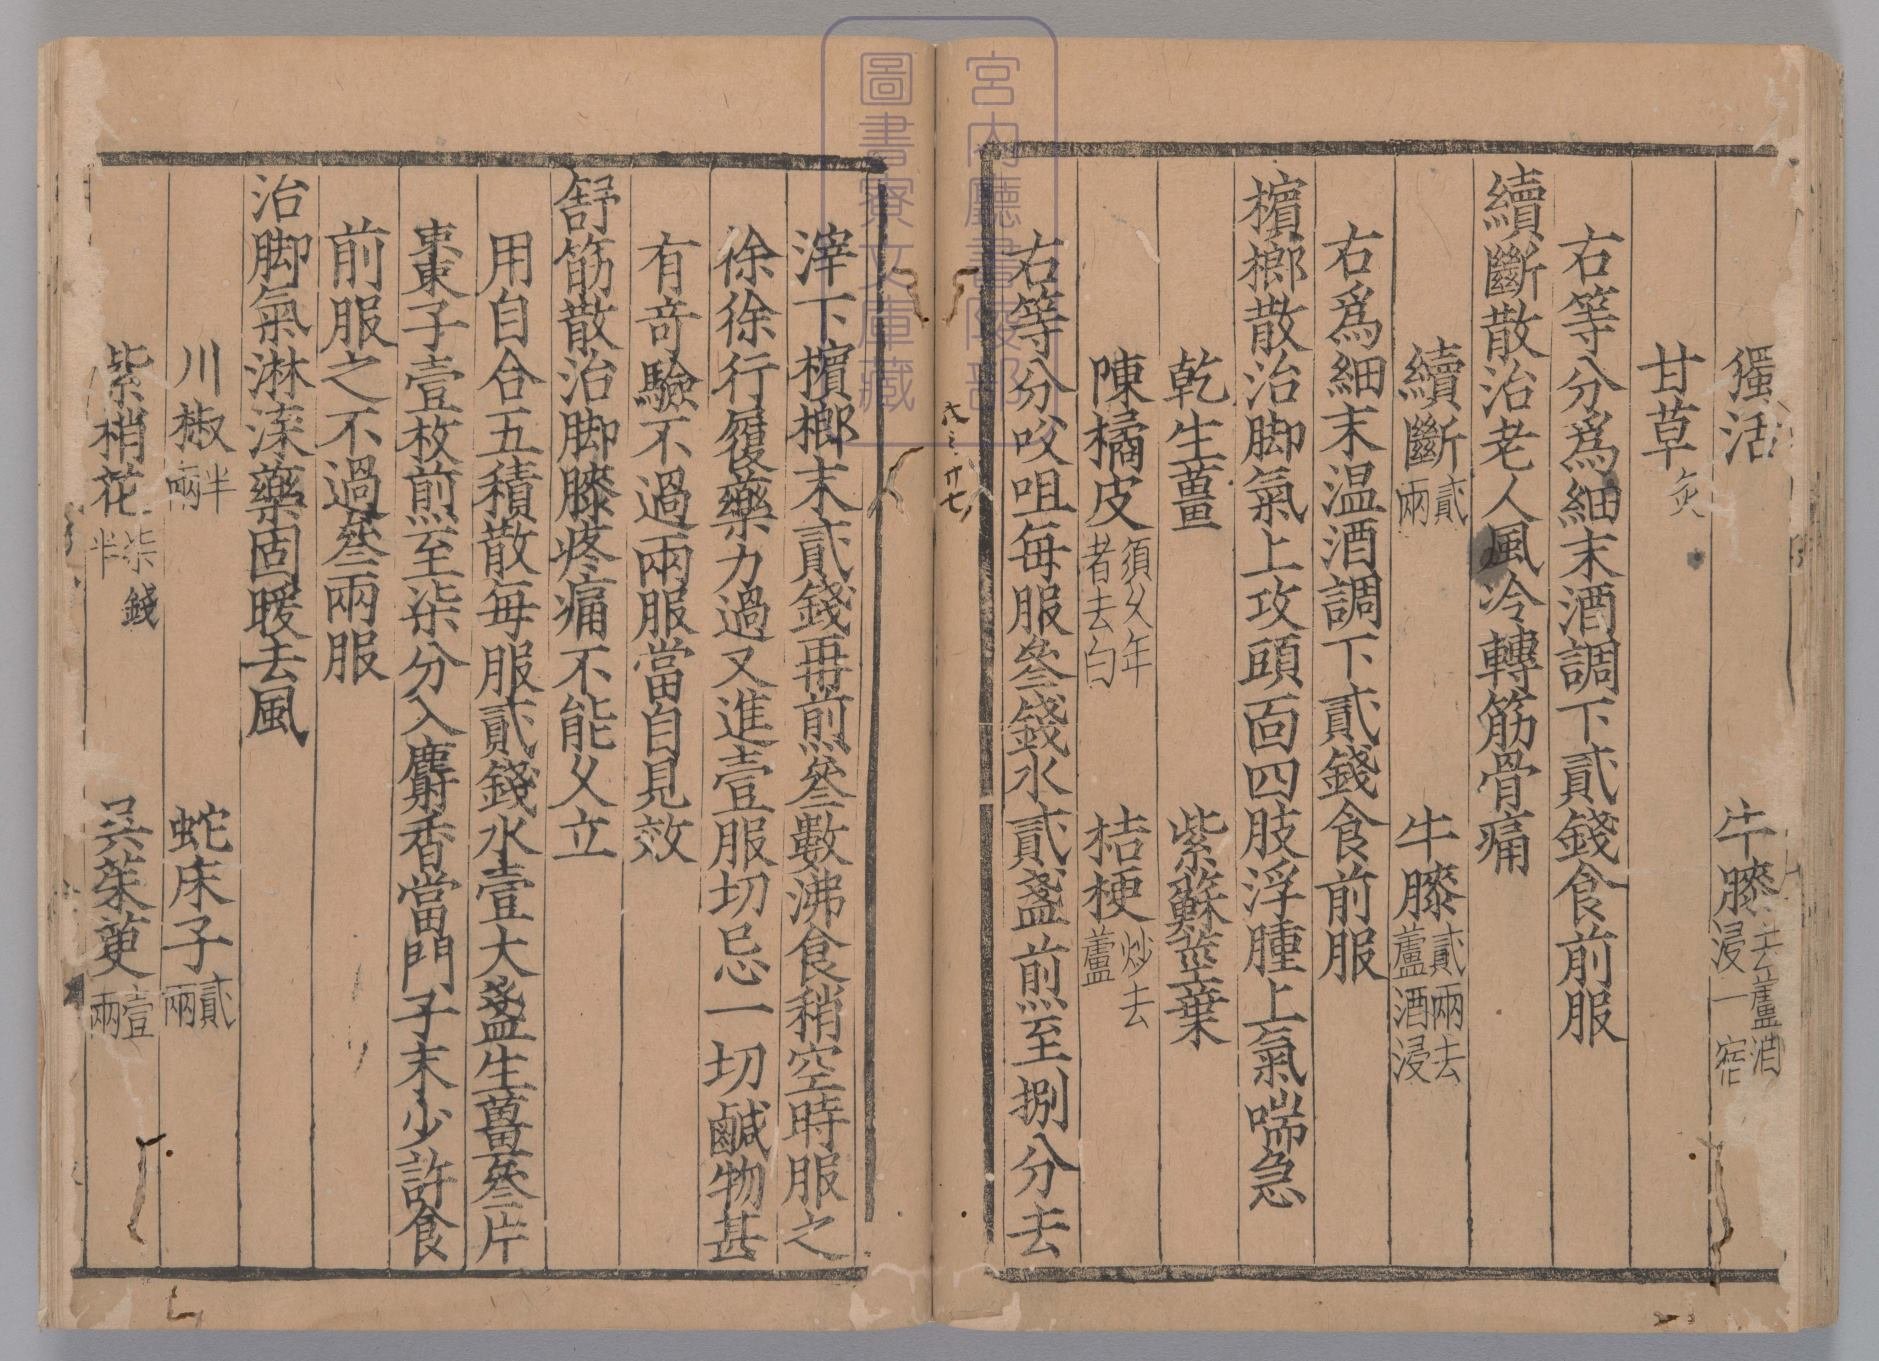 獨活　牛膝去蘆酒浸一宿
甘草炙
右等分爲細末酒調下貳錢食前服
續斷散治老人風冷轉筋骨痛
續斷貳兩　牛膝貳兩去蘆酒浸
右爲細末温酒調下貳錢食前服
檳榔散治脚氣上攻頭面四肢浮腫上氣喘急
乾生薑　紫蘇莖葉
陳橘皮須久年者去白　桔梗炒去蘆
右等分㕮咀每服叁錢水貳盞煎至捌分去
滓下檳榔末貳錢再煎叁數沸食稍空時服之
徐徐行履藥力過又進壹服切忌一切鹹物甚
有奇驗不過兩服當自見效
舒筋散治脚膝疼痛不能久立
用自合五積散每服貳錢水壹大盞生薑叁片
棗子壹枚煎至柒分入麝香當門子末少許食
前服之不過叁兩服
治脚氣淋渫藥固暖去風
川椒半兩　蛇床子貳兩
紫梢花柒錢半　吳茱萸壹兩
宮内廳書陵部
圖書寮文庫藏